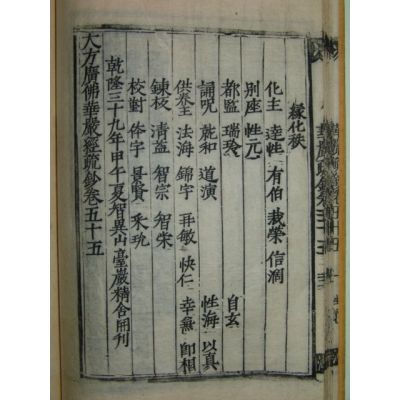 緣化秩
化主 達性 有伯 裁榮 信潤
別座 性元
都監 瑞玲 自玄
誦呪 就和 道演 性海 以真
供養主 法海 錦宇 再敏 快仁 幸無 即相
鍊板 清益 智宗 智宋
校對 体宇 景賢 采玧
乾隆三十九年甲午夏智異山臺巖精舍開刊
大方廣佛華嚴經疏鈔卷五十五